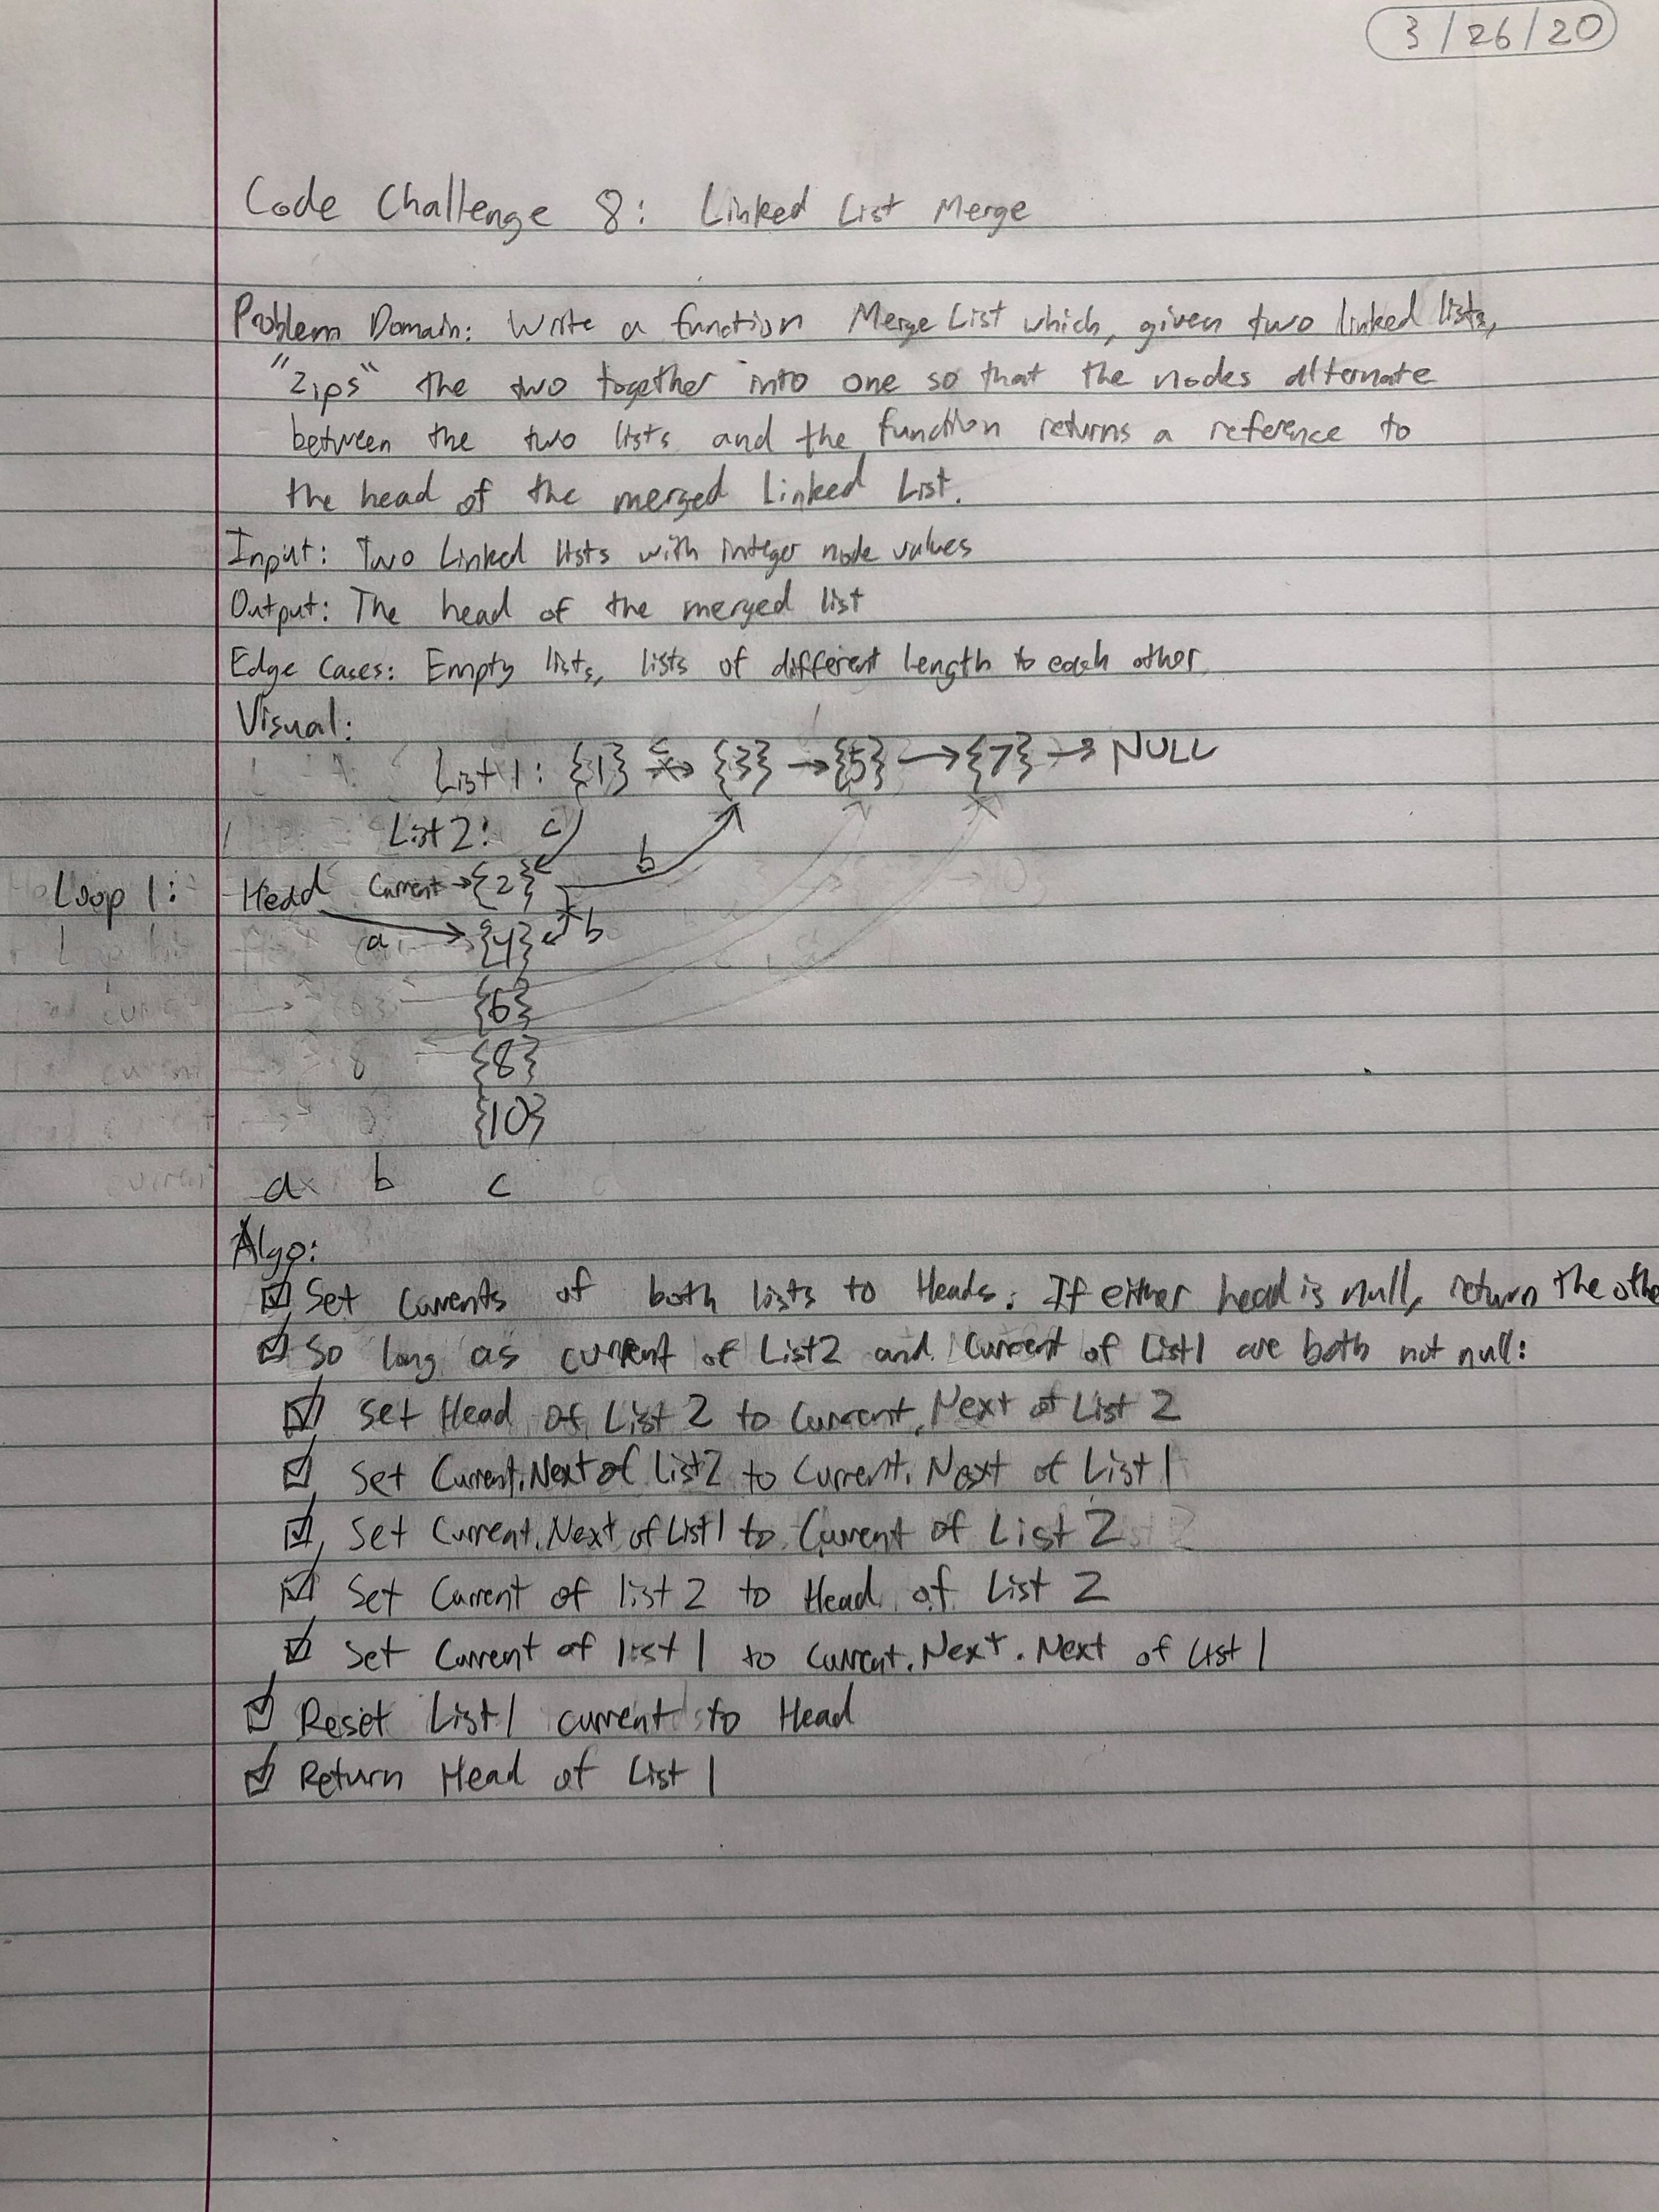 3/26/20
Code Challenge 8: Linked List Merge
Problem Domain: Write a function Merge List which, given two linked lists,
"Zips" the two together into one so that the nodes alternate
between the two lists and the function returns a reference to
the head of the merged Linked List.
Input: Two Linked lists with integer node values
Output: The head of the merged list
Edge Cases: Empty lists, lists of different length to each other
Visual:
List 1: {1} → {3} → {5} → {7} → NULL
c
List 2: c
b
Loop 1: Head Current → {2}
a {4} b
{6}
{8}
{10}
a b c
Algo:
Set Currents of both lists to Heads. If either head is null, return the othe
So long as current of List2 and Current of List1 are both not null:
Set Head of List 2 to Current.Next of List 2
Set Current.Next of List2 to Current.Next of List 1
Set Current.Next of List1 to Current of List 2
Set Current of list 2 to Head of List 2
Set Current of list 1 to Current.Next.Next of List 1
Reset List1 current to Head
Return Head of List 1